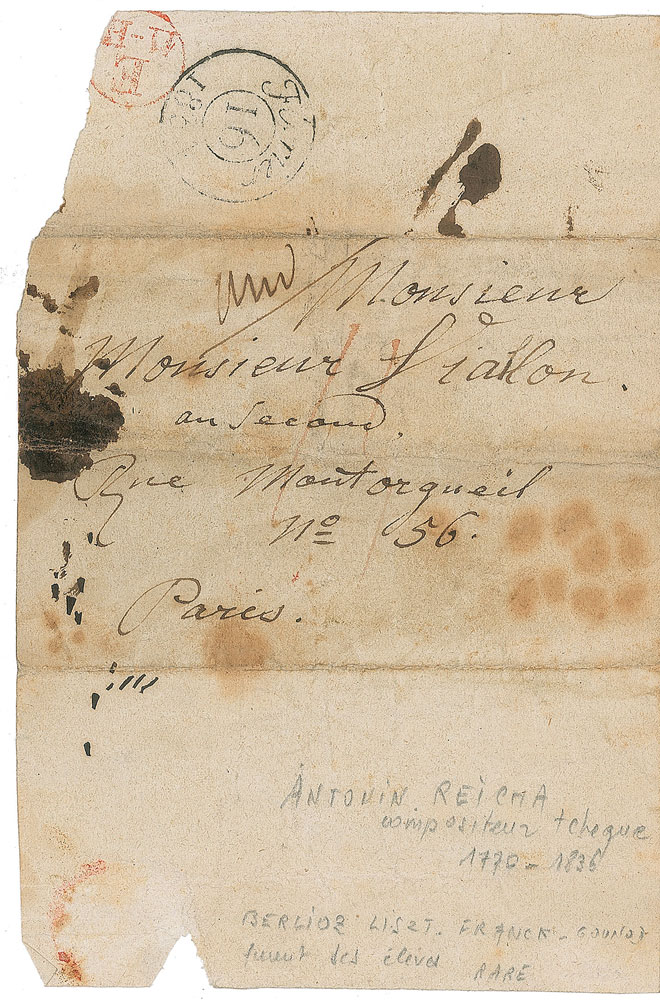 Février
16
Monsieur
Monsieur Viallon.
au Second.
Rue Montorgueil
No 56.
Paris.
ANTONIN REICHA
compositeur tcheque
1770 - 1836
BERLIOZ LISZT. FRANCK - GOUNOD
furent ses élèves
RARE